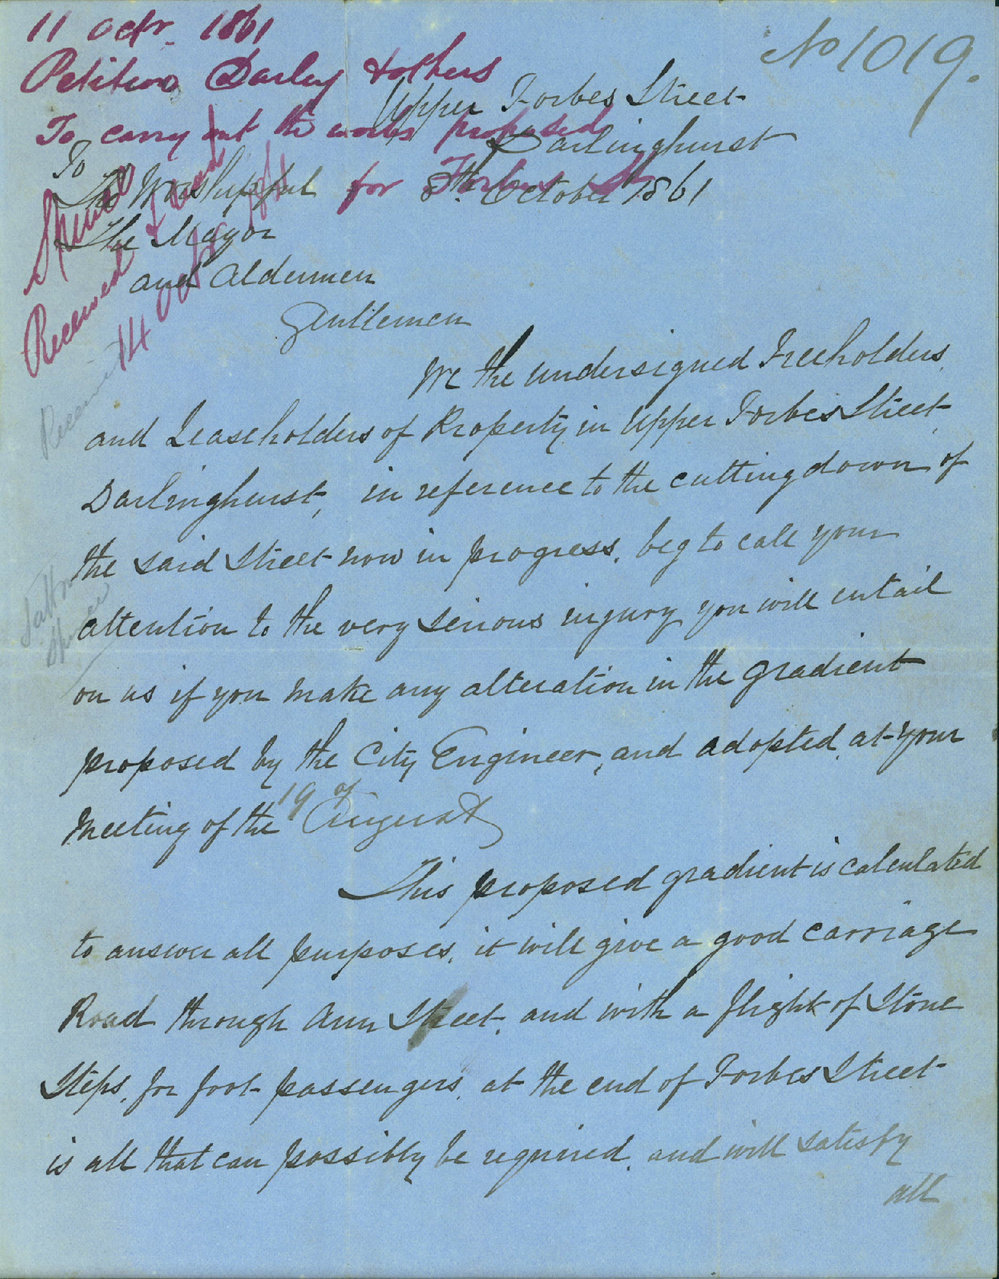 11 Octr. 1861
No 1019.
Petition Darley & others
Upper Forbes Street
To carry out the works proposed
Darlinghurst
for Forbes St
8th. October 1861
To
The Worshipful
The Mayor
and Aldermen
Gentlemen
Received & read
14 Oct
Received
We the undersigned Freeholders
and Leaseholders of Property in Upper Forbes Street
Darlinghurst, in reference to the cutting down of
the said Street now in progress, beg to call your
attention to the very serious injury you will entail
on us if you make any alteration in the gradient
proposed by the City Engineer, and adopted at your
Meeting of the 19 of August
This proposed gradient is calculated
to answer all purposes, it will give a good carriage
Road through Ann Street, and with a flight of Stone
Steps, for foot passengers, at the end of Forbes Street
is all that can possibly be required, and will satisfy
all